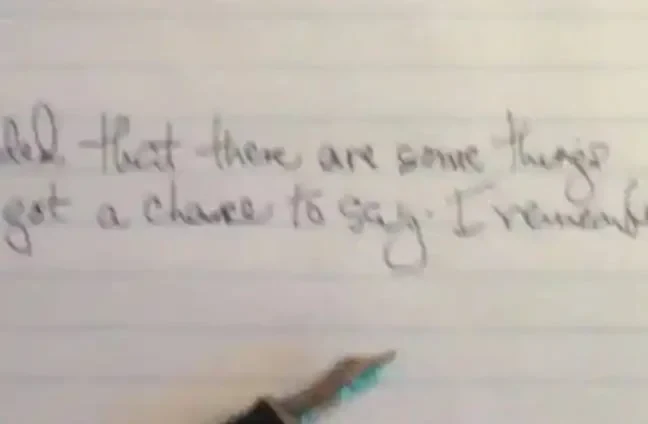 that there are some things
got a chance to say. I rememb